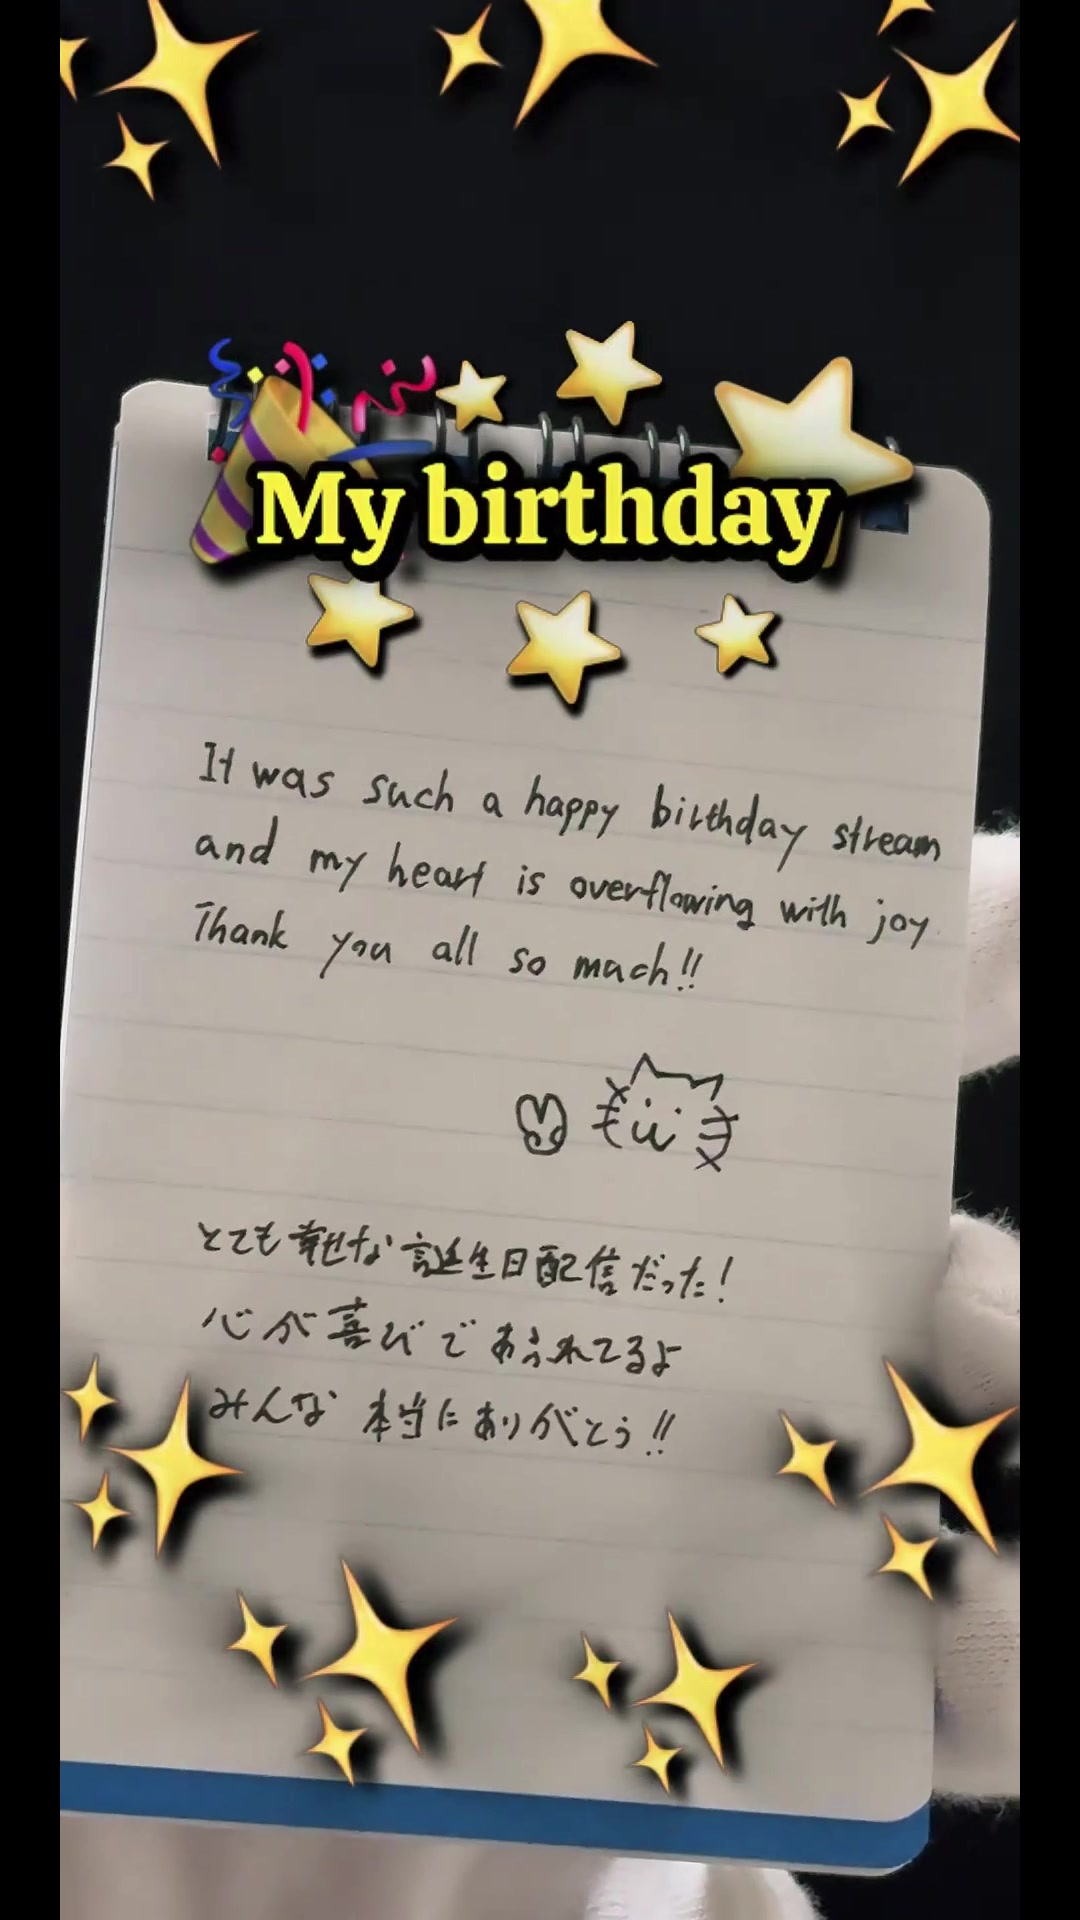 My birthday
It was such a happy birthday stream
and my heart is overflowing with joy
Thank you all so mach!!
とても幸せな誕生日配信だった!
心が喜びであふれてるよ
みんな 本当にありがとう!!